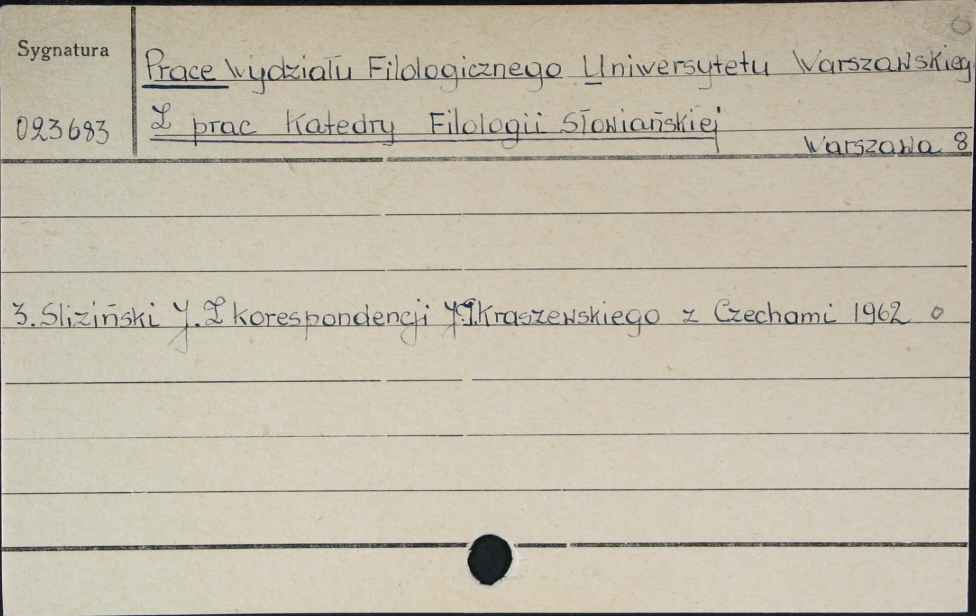 Sygnatura
Prace Wydziału Filologicznego Uniwersytetu Warszawskieg
023683
Z prac Katedry Filologii Słowiańskiej
Warszawa 8
3. Śliziński J. Z korespondencji J.I. Kraszewskiego z Czechami 1962 o